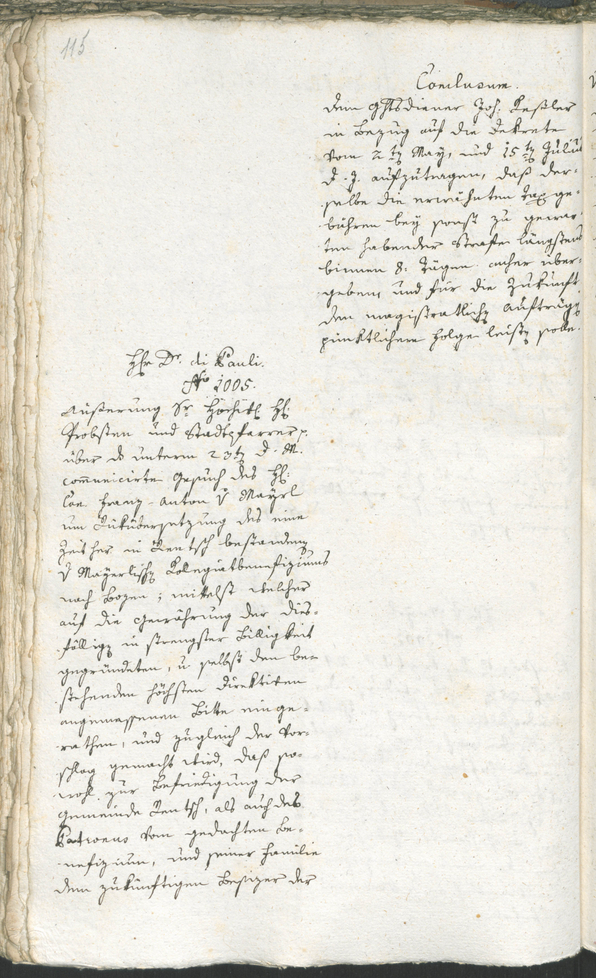 115
Conclusum.
Dem Ghtsdiener Joh: Keßler
in Bezug auf die Dekrete
vom 2tn May, und 15tn Julius
d. J. aufzutragen, daß der-
selbe die erwähnten Taxge-
bühren bey sonst zu gewar-
ten habender Strafe längstens
binnen 8: Tägen anher über-
geben, und für die Zukunft
den magistratlichn Aufträgn
pünktlichere Folge leistn solle.
Hr Dr. di Pauli.
Nro 1005.
Äußerung Sr Hochw. H:
Probsten und Stadtpfarrers
über das unterm 23tn d. M.
communicirte Gesuch des H:
Franz-Anton v Mayrl
um Rückübersetzung des eine
Zeit her in Rentsch bestandenen
v Mayrlischn Kolegiatbenefiziums
nach Bozen; mittelst welcher
auf die Gewährung der dies-
fälligen in strengster Billigkeit
gegründeten, u selbst den be-
stehenden höchsten Direktiven
angemessenen Bitte einge-
rathen, und zugleich der Vor-
schlag gemacht wird, daß so-
wohl zur Befriedigung der
Gemeinde Rentsch, als auch des
Patrons vom gedachten Be-
nefizium, und seiner Familie
dem zukünftigen Besizer der